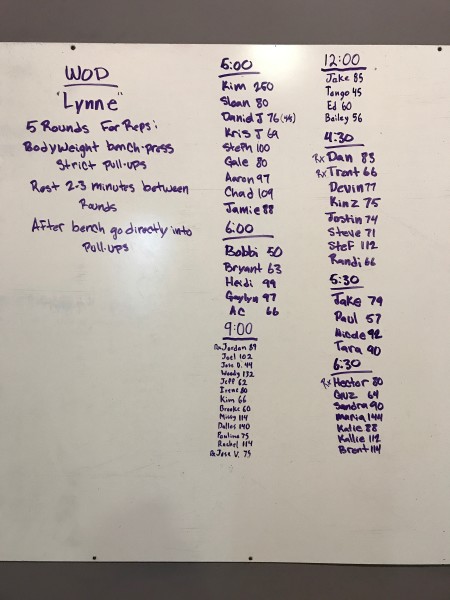 WOD
"Lynne"
5 Rounds For Reps:
Bodyweight bench-press
Strict Pull-ups
Rest 2-3 minutes between
Rounds
After bench go directly into
Pull-ups
5:00
Kim 250
Sloan 80
Daniel J 76 (44)
Kris J 69
Steph 100
Gale 80
Aaron 97
Chad 109
Jamie 88
6:00
Bobbi 50
Bryant 63
Heidi 99
Gaylyn 97
AC 66
9:00
Rx Jordan 89
Joel 102
Jose D. 44
Woody 132
Jeff 62
Irene 80
Kim 66
Brooke 60
Missy 114
Dallas 140
Pauline 75
Rachel 114
Rx Jose V. 75
12:00
Jake 85
Tango 45
Ed 60
Bailey 56
4:30
Rx Dan 83
Rx Trent 66
Devin 77
Kinz 75
Justin 74
Steve 71
Stef 112
Randi 66
5:30
Jake 79
Paul 57
Nicole 92
Tara 90
6:30
Rx Hector 80
Cruz 64
Sandra 90
Maria 144
Katie 88
Kallie 112
Brent 114